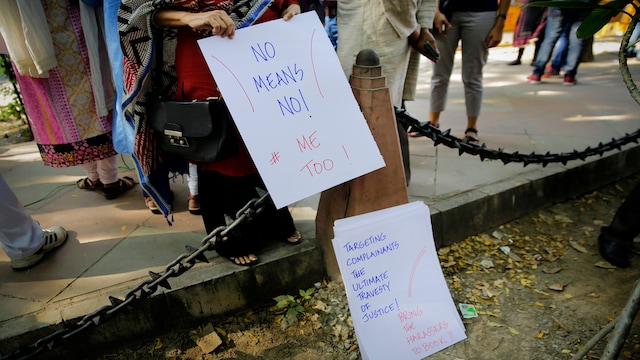 NO
MEANS
NO!
# ME
TOO!
TARGETING
COMPLAINANTS
THE
ULTIMATE
TRAVESTY
OF
JUSTICE!
BRING
THE
HARASSERS
TO BOOK!!